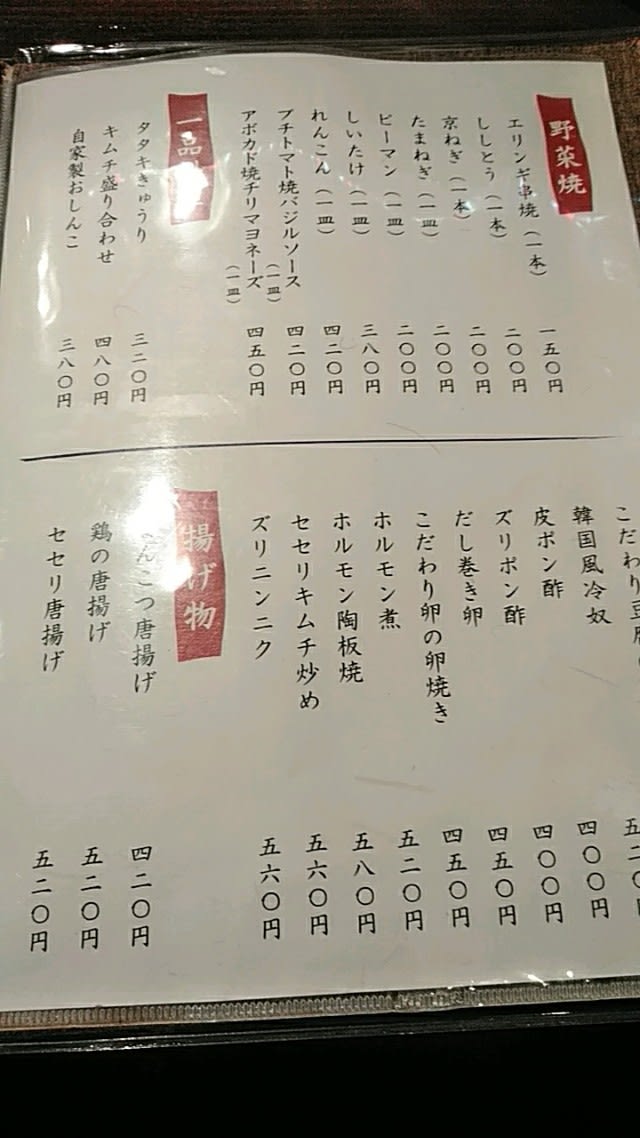 野菜焼
エリンギ串焼（一本） 一五〇円
ししとう（一本） 二〇〇円
京ねぎ（一本） 二〇〇円
たまねぎ（一皿） 二〇〇円
ピーマン（一皿） 二〇〇円
しいたけ（一皿） 三八〇円
れんこん（一皿） 四二〇円
プチトマト焼バジルソース（一皿） 四二〇円
アボカド焼チリマヨネーズ（一皿） 四五〇円
一品
タタキきゅうり 三二〇円
キムチ盛り合わせ 四八〇円
自家製おしんこ 三八〇円
こだわり豆腐
韓国風冷奴 五二〇
皮ポン酢 四〇〇円
ズリポン酢 四〇〇円
だし巻き卵 四五〇円
こだわり卵の卵焼き 四五〇円
ホルモン煮 五二〇円
ホルモン陶板焼 五八〇円
セセリキムチ炒め 五六〇円
ズリニンニク 五六〇円
揚げ物
んこつ唐揚げ 四二〇円
鶏の唐揚げ 五二〇円
セセリ唐揚げ 五二〇円